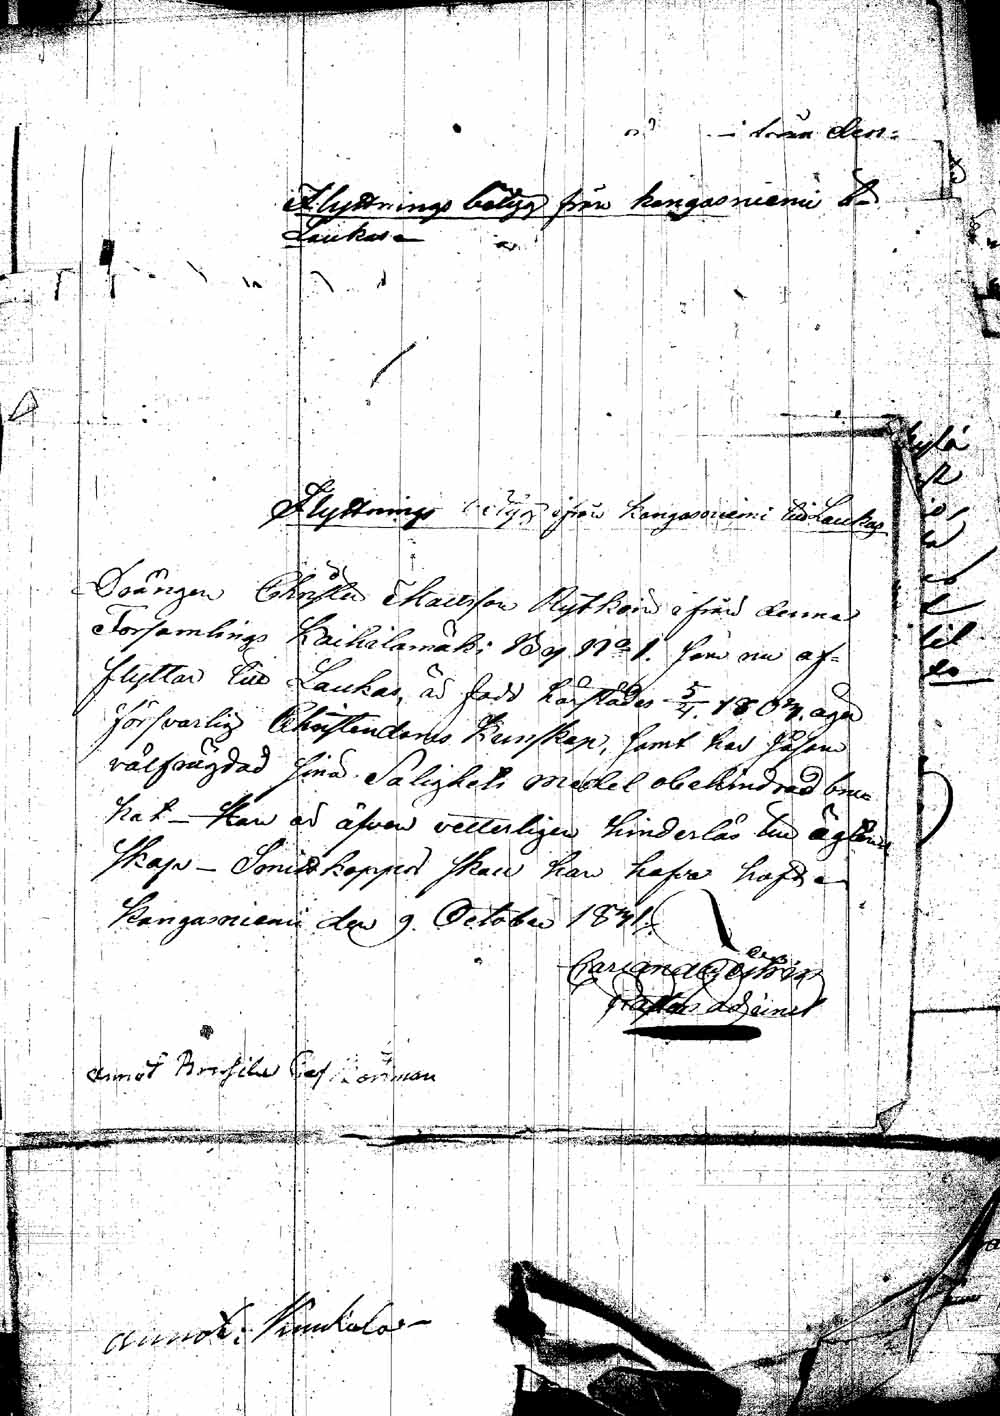 i från den:
Flyttnings betyg från kangasniemi t
Laukas
Flyttnings betyg ifrån Kangasniemi till Laukas
Drängen Christer Mattsson Rytkön ifrån denna
Församlings Kaihilamäki By No 1. som nu af=
flyttar till Laukas, är född härstädes 5/4. 1807. äger
försvarlig Christendoms Kunskap, samt har såsom
välfrägdad sina Salighets medel obehindrad bru=
kat – är äfven vetterligen hinderlös till ägten
skap – Smittkoppor skall han hafva haft
Kangasniemi den 9. October 1841.
annot
annot: Kuukala